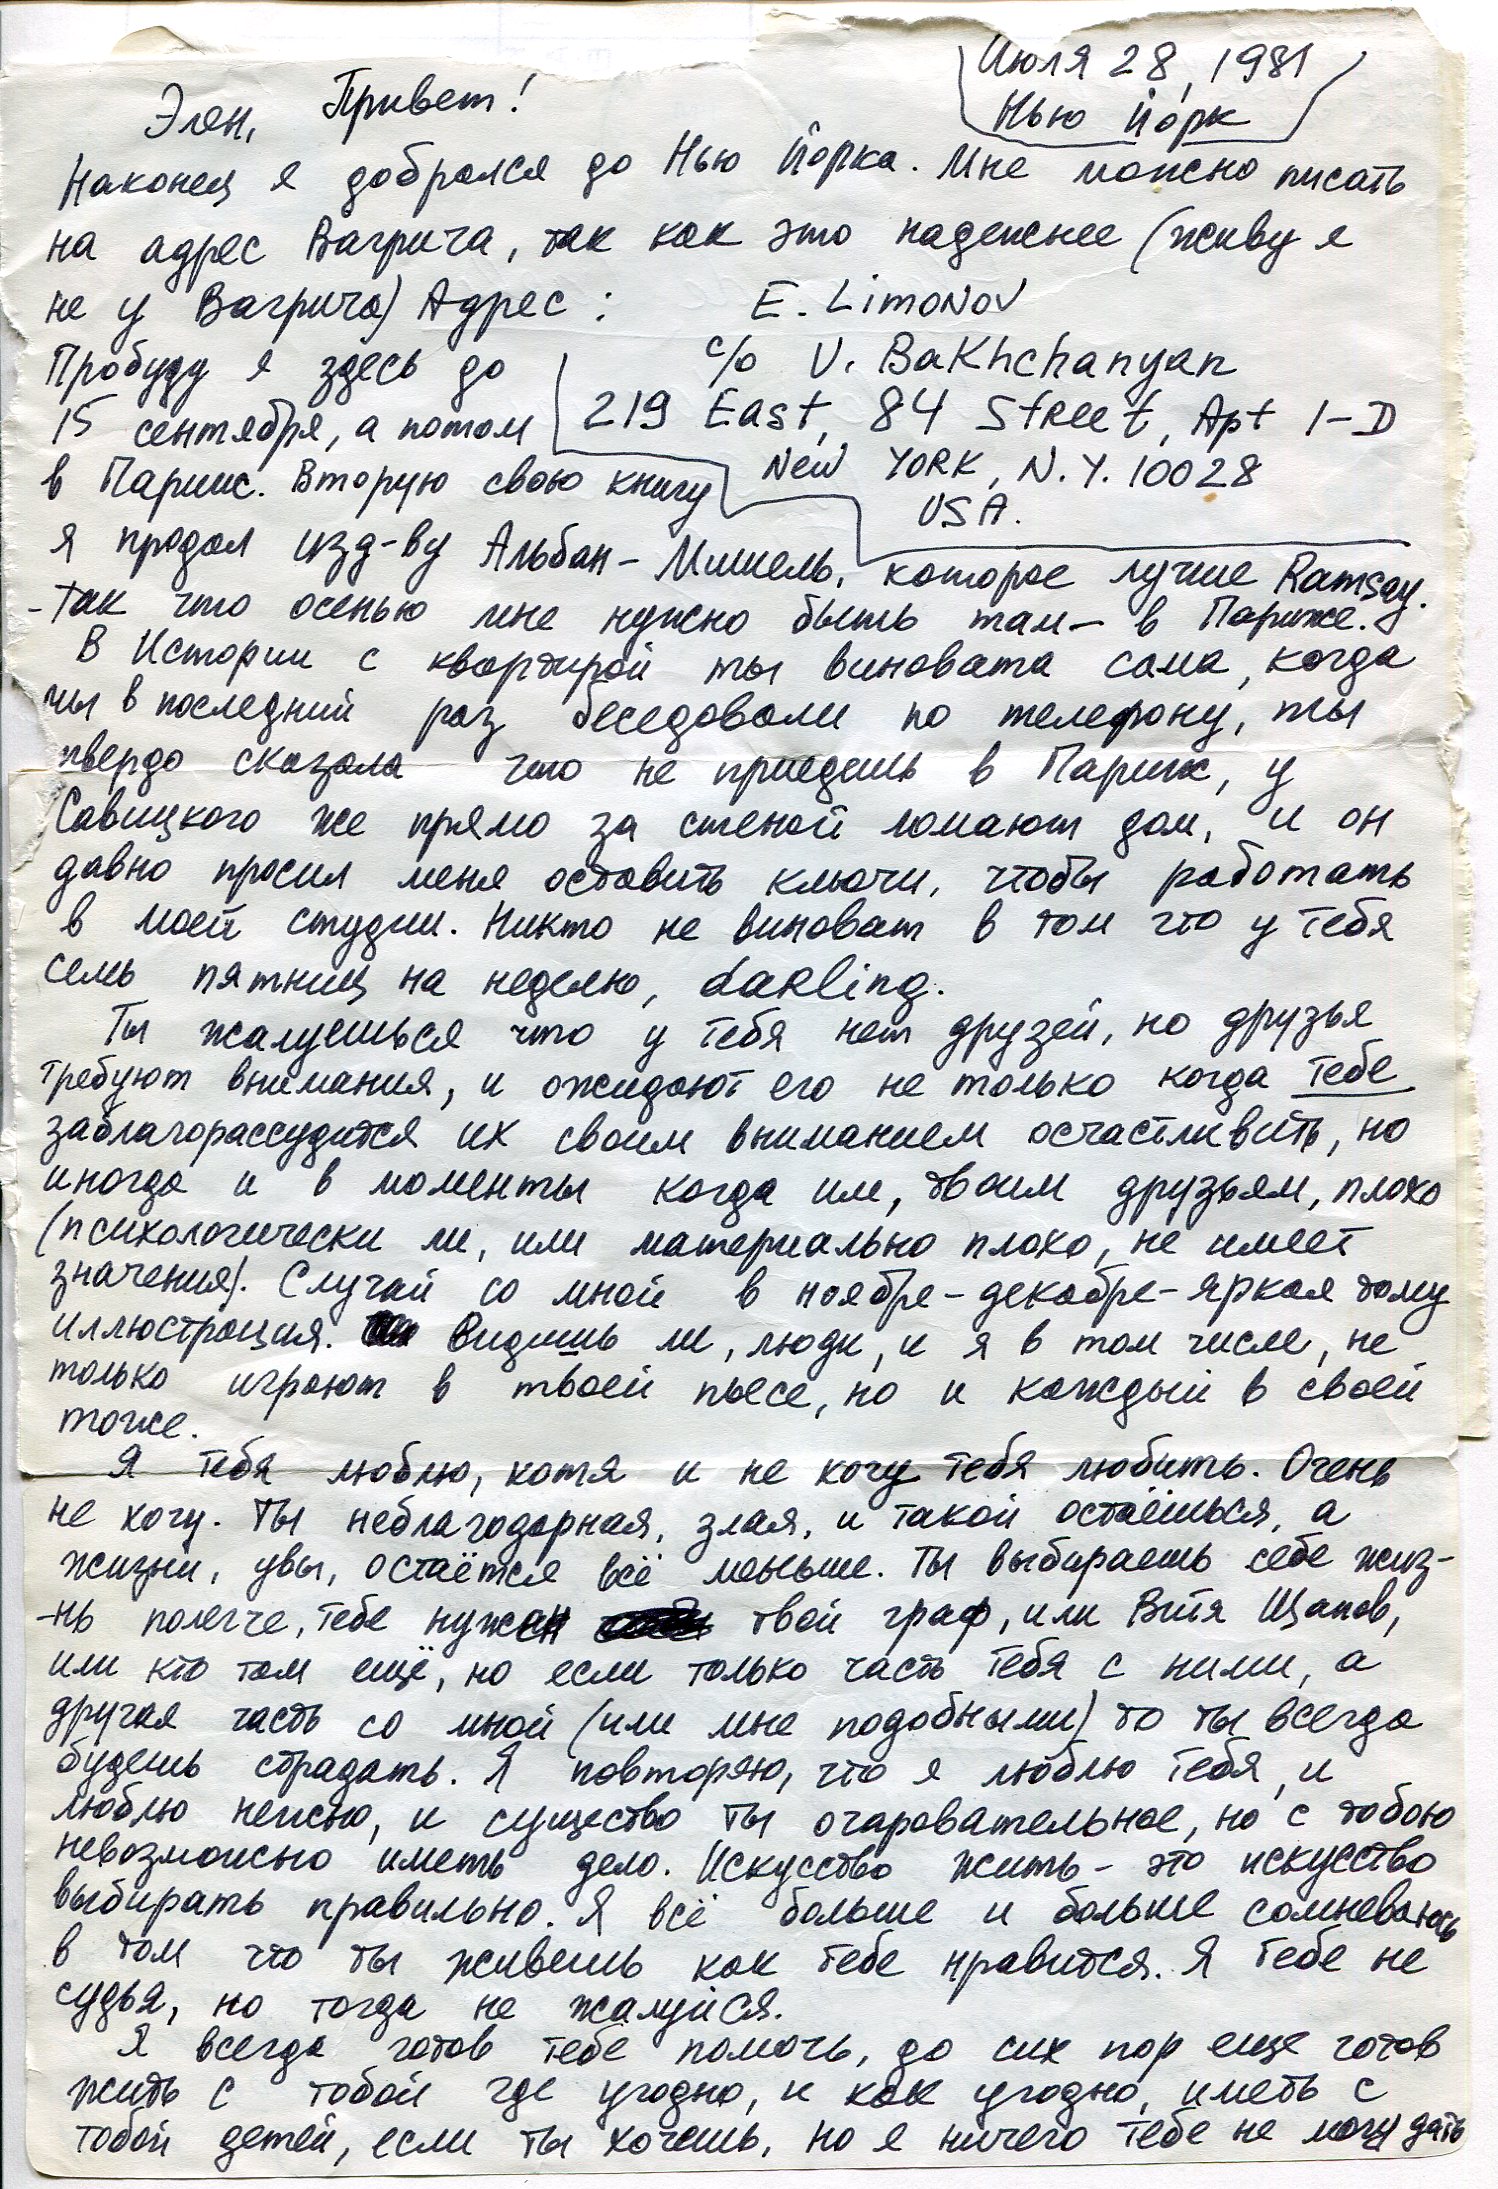 Июля 28, 1981
Нью Йорк
Элен, Привет!
Наконец я добрался до Нью Йорка. Мне можно писать
на адрес Вагрича, так как это надежнее (живу я
не у Вагрича) Адрес:
E. Limonov
c/o V. Bakhchanyan
219 East, 84 Street, Apt 1-D
New York, N.Y. 10028
USA.
Пробуду я здесь до
15 сентября, а потом
в Париж. Вторую свою книгу
я продал изд-ву Альбан-Мишель, которое лучше Ramsay.
-Так что осенью мне нужно быть там - в Париже.
В Истории с квартирой ты виновата сама, когда
мы в последний раз беседовали по телефону, ты
твердо сказала что не приедешь в Париж, у
Савицкого же прямо за стеной ломают дом, и он
давно просил меня оставить ключи, чтобы работать
в моей студии. Никто не виноват в том что у тебя
семь пятниц на неделю, darling.
Ты жалуешься что у тебя нет друзей, но друзья
требуют внимания, и ожидают его не только когда тебе
заблагорассудится их своим вниманием осчастливить, но
иногда и в моменты когда им, твоим друзьям, плохо
(психологически ли, или материально плохо, не имеет
значения). Случай со мной в ноябре-декабре - яркая тому
иллюстрация. Видишь ли, люди, и я в том числе, не
только играют в твоей пьесе, но и каждый в своей
тоже.
Я тебя люблю, хотя и не хочу тебя любить. Очень
не хочу. Ты неблагодарная, злая, и такой остаёшься, а
жизни, увы, остаётся всё меньше. Ты выбираешь себе жиз-
-нь полегче, тебе нужен твой граф, или Витя Щапов,
или кто там ещё, но если только часть тебя с ними, а
другая часть со мной (или мне подобными) то ты всегда
будешь страдать. Я повторяю, что я люблю тебя, и
люблю нежно, и существо ты очаровательное, но с тобою
невозможно иметь дело. Искусство жить - это искусство
выбирать правильно. Я всё больше и больше сомневаюсь
в том что ты живешь как тебе нравится. Я тебе не
судья, но тогда не жалуйся.
Я всегда готов тебе помочь, до сих пор еще готов
жить с тобой где угодно, и как угодно, иметь с
тобой детей, если ты хочешь, но я ничего тебе не могу дать